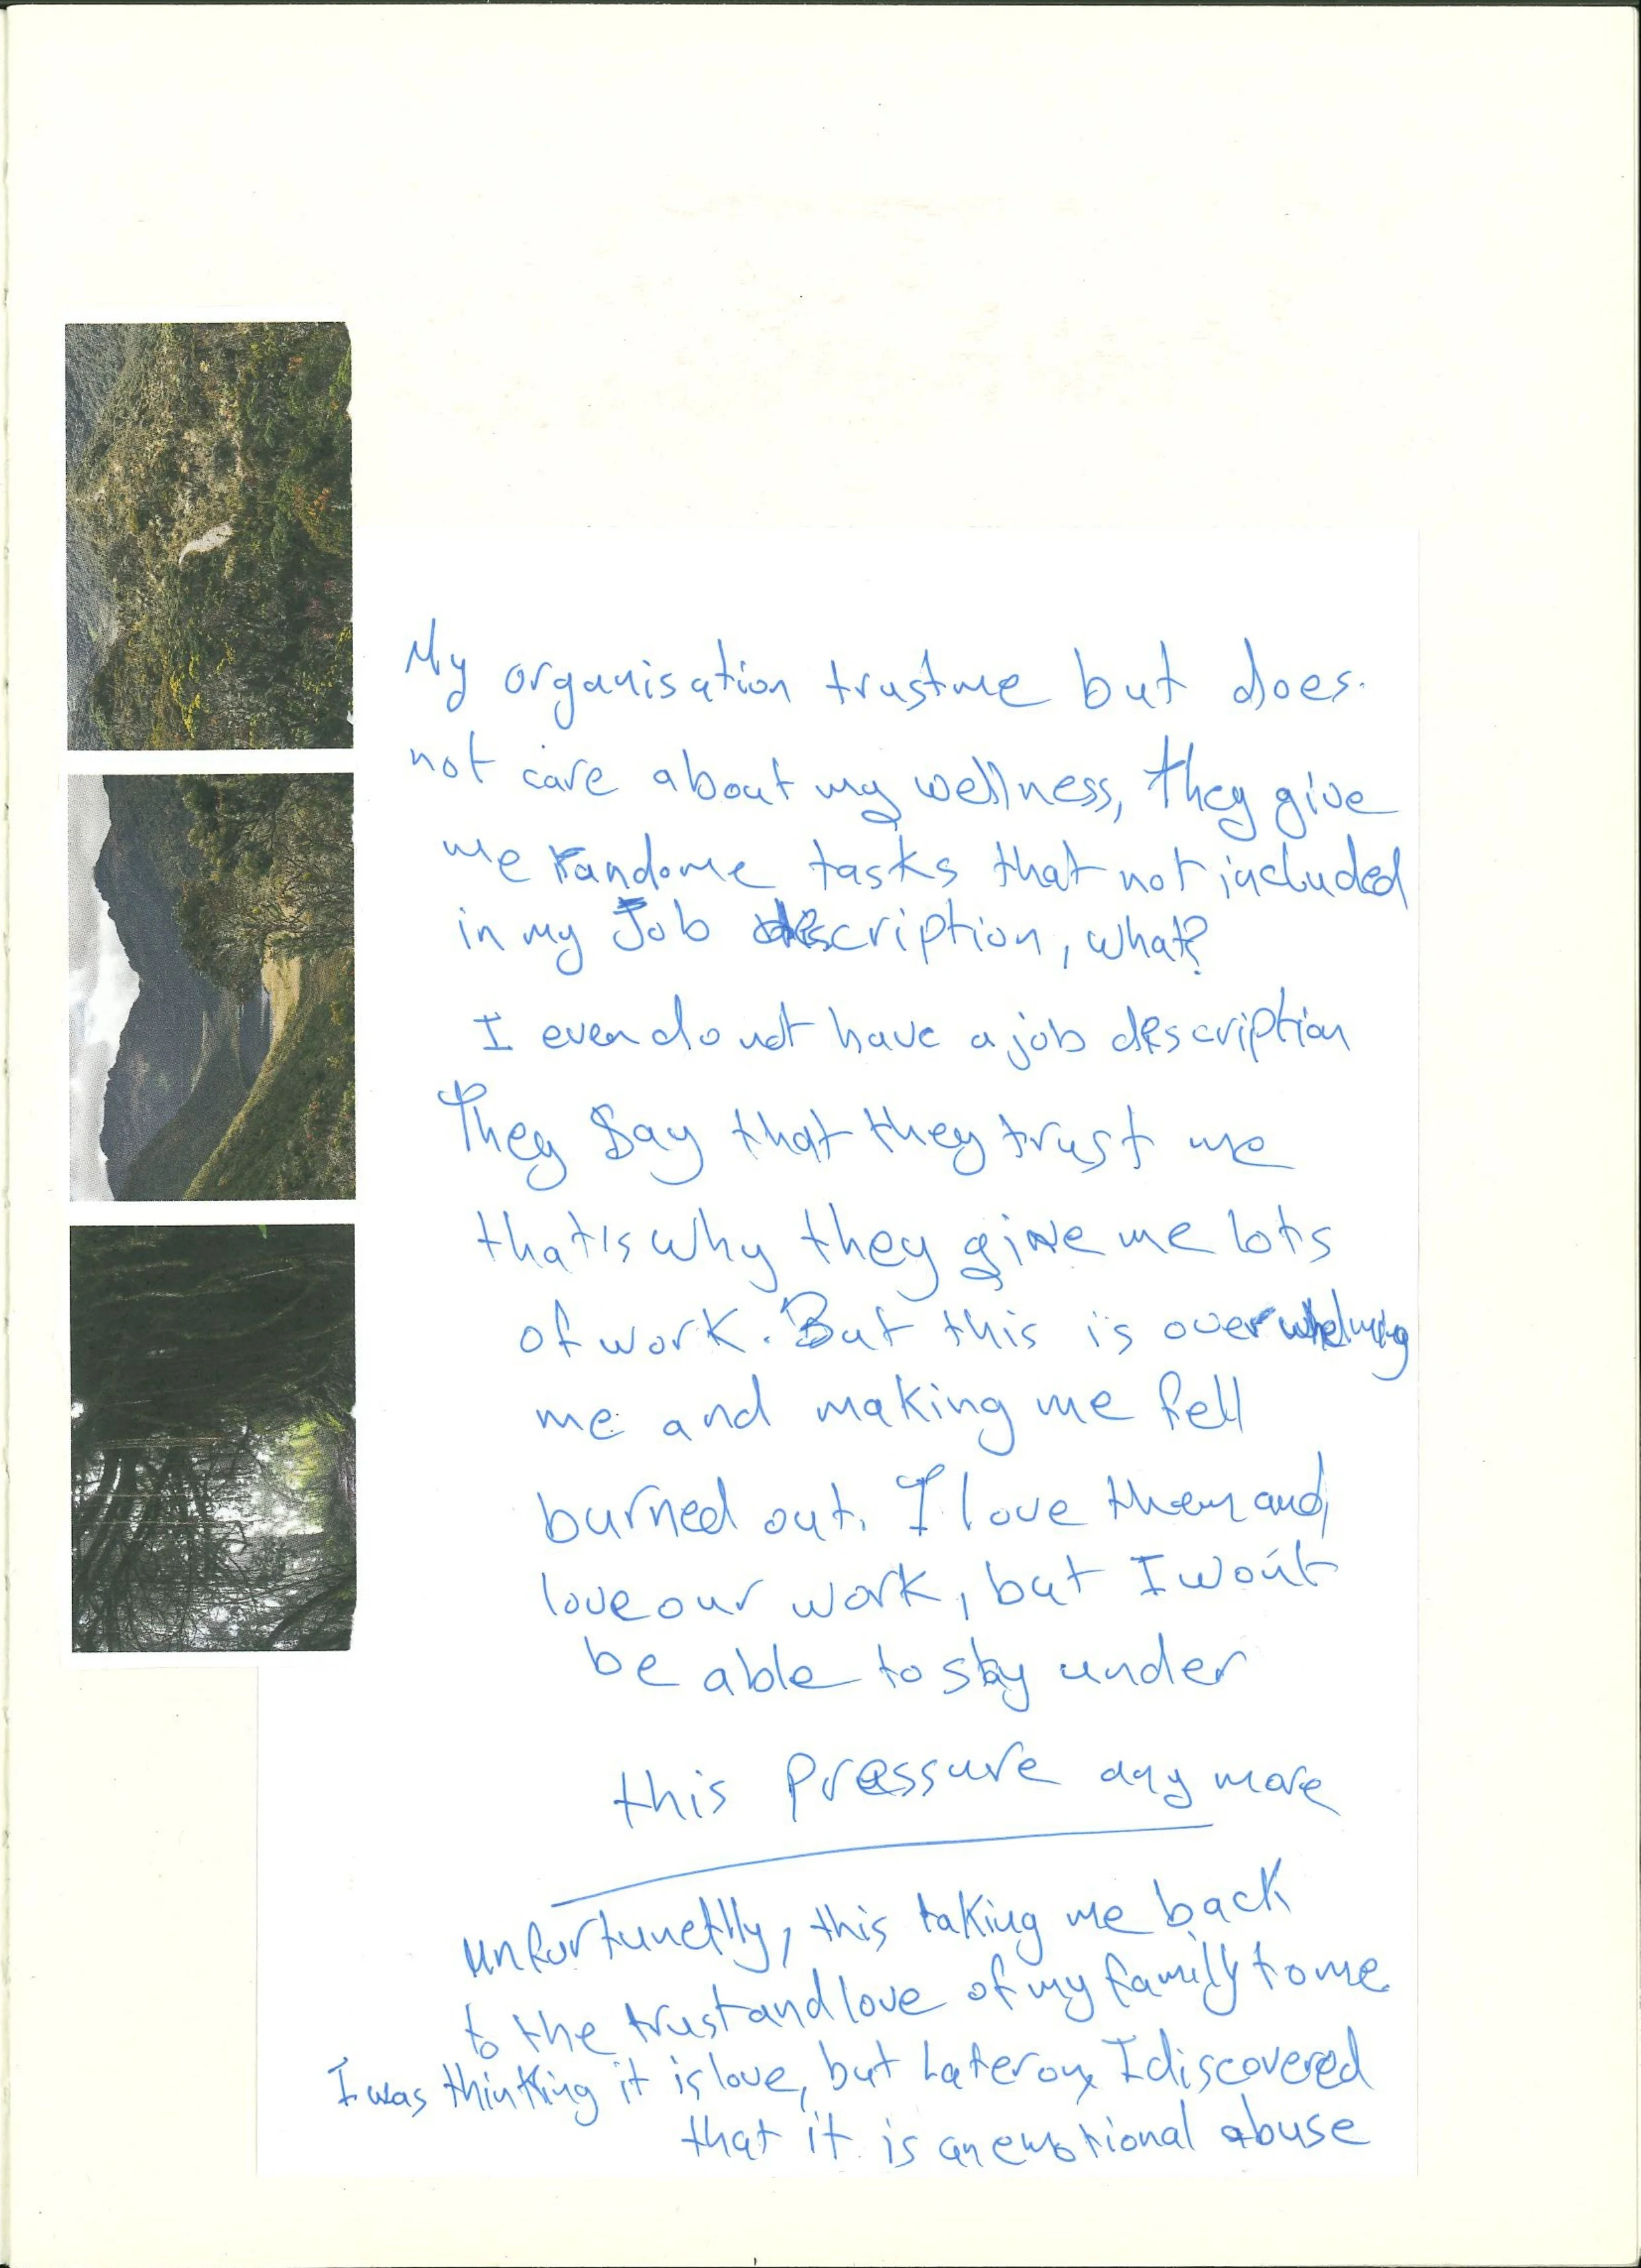 My organisation trust me but does
not care about my wellness, they give
me randome tasks that not included
in my Job description, what?
I even do not have a job description
They Say that they trust me
that's why they give me lots
of work. But this is overwhelming
me and making me fell
burned out. I love them and
love our work, but I won't
be able to stay under
this pressure any more
unfortunetlly, this taking me back
to the trust and love of my family to me
I was thinking it is love, but Later on I discovered
that it is an emotional abuse